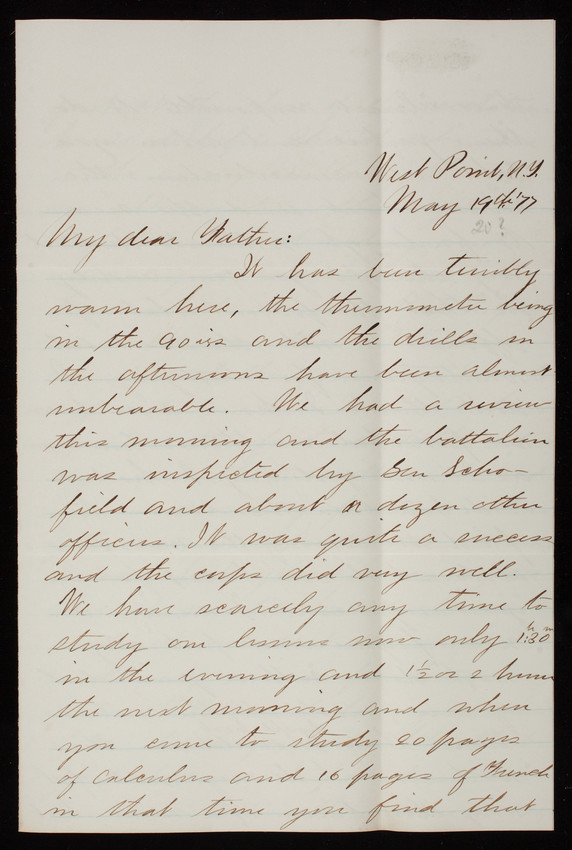 West Point, N.Y.
May 19th '77
20?
My dear Father:
It has been terribly
warm here, the thermometer being
in the 90ies and the drills in
the afternoons have been almost
unbearable. We had a review
this morning and the battalion
was inspected by Gen Scho-
field and about a dozen other
officers. It was quite a success
and the corps did very well.
We have scarcely any time to
study our lessons now only 1h:30m
in the evening and 1½ or 2 hours
the next morning and when
you come to study 20 pages
of calculus and 16 pages of French
in that time you find that